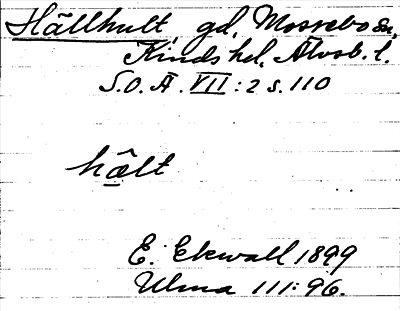 Hällhult, gd, Mossebo sn,
Kinds hd, Älvsb. l.
S.O.Ä. VII:2 s.110
hält
E. Ekwall 1899
Ulma 111:96.